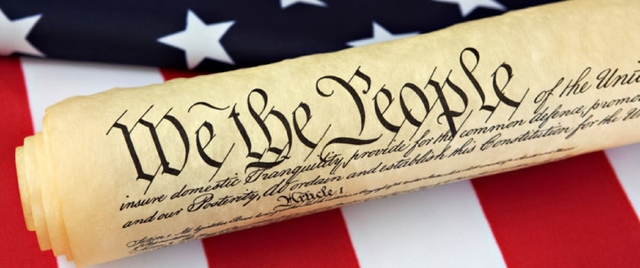 We the People of the Unite
insure domestic Tranquility, provide for the common defence, promo
and our Posterity, do ordain and establish this Constitution for the Un
Article I